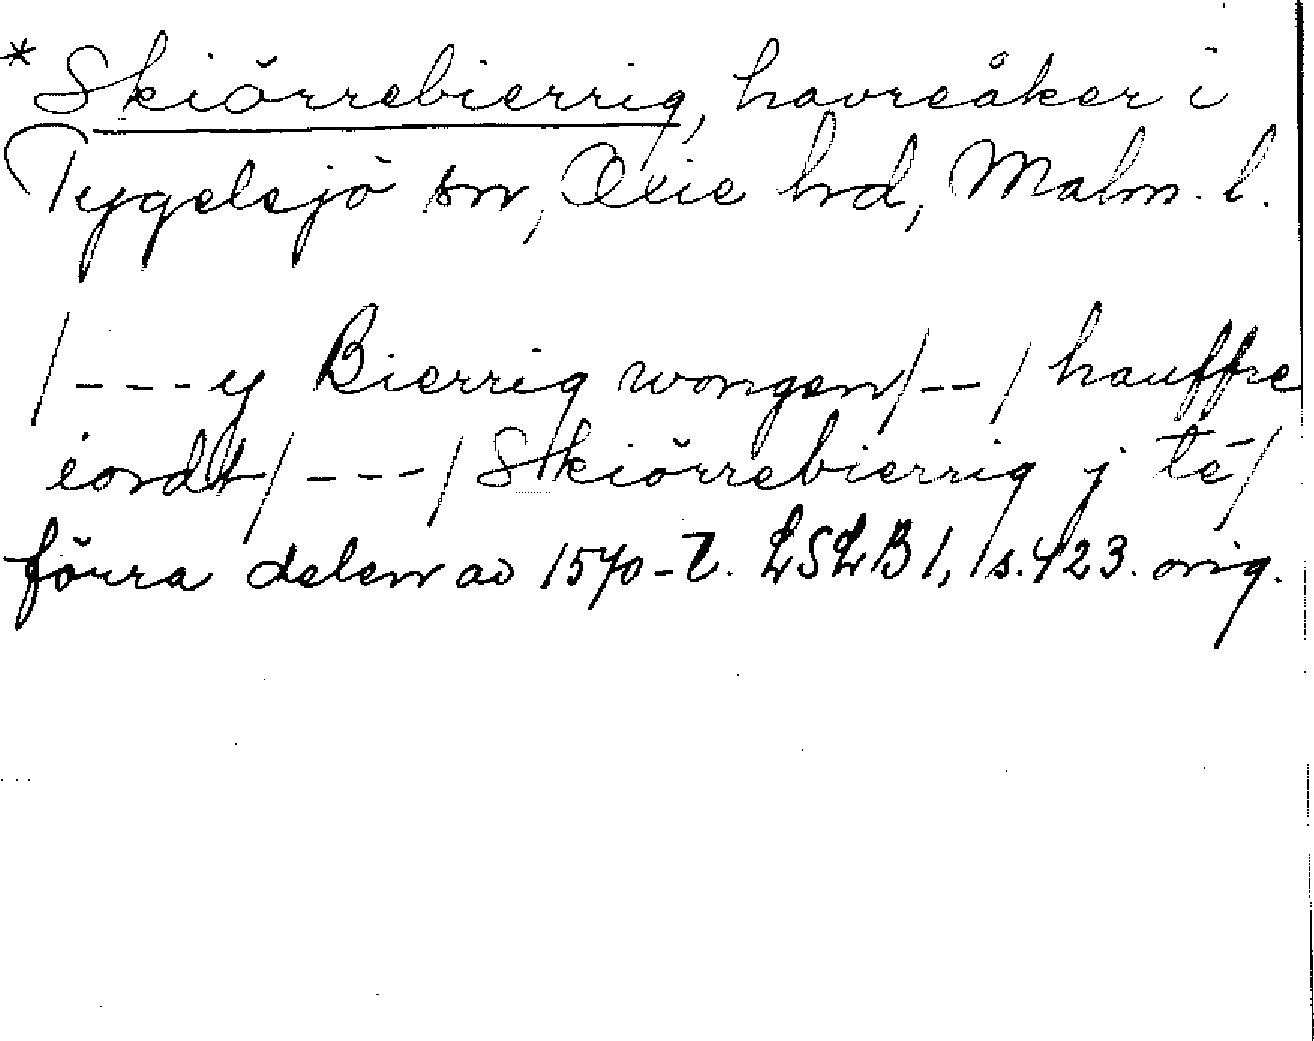 * Skiörrebierrig, havreåker i
Tygelsjö sn, Oxie hd, Malm. l.
/---y Bierrig wongen/--/ hauffre
iordt/---/ Skiörrebierrig j tē/
förra delen av 1570-t. LSLB 1, s. 423. orig.